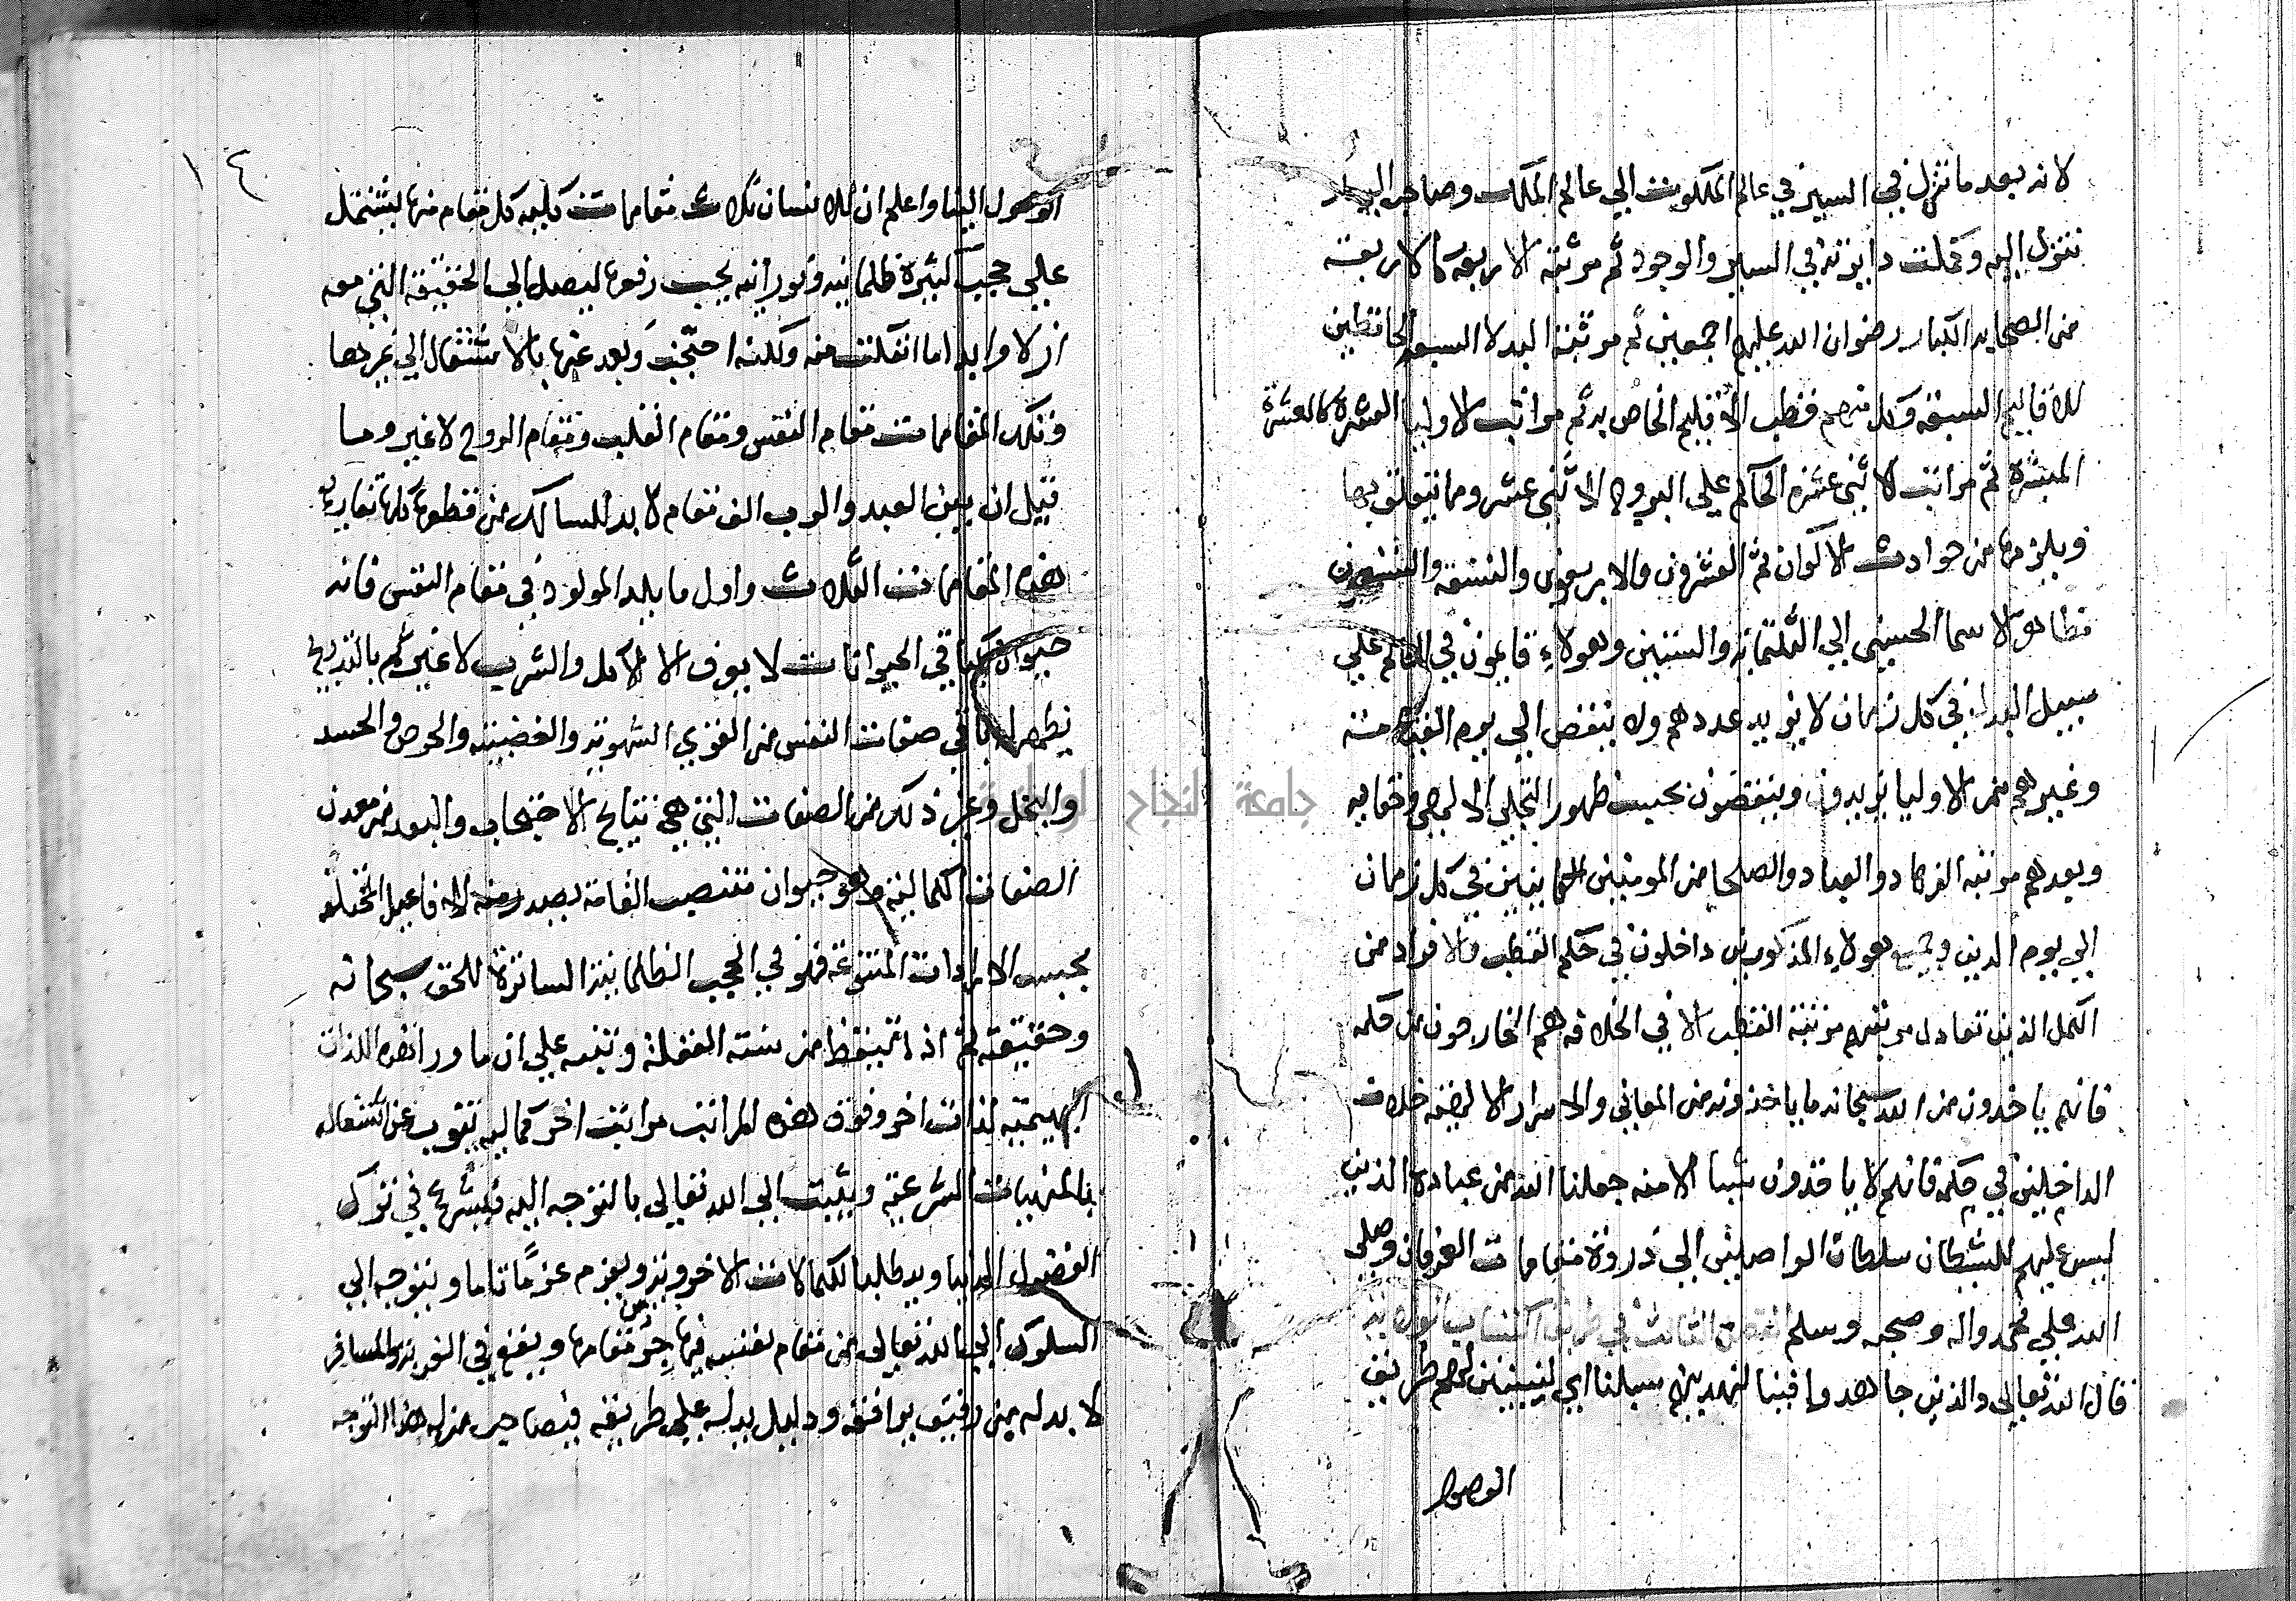 لانه بعد ما نزل في السير في عالم الملكوت الي عالم الملك وصاحب
تنزل اليه وكملت دايرته في السير والوجود ثم مرتبة الاربعة كالاربعة
من الصحابه الكبار رضوان الله عليهم اجمعين ثم مرتبة البدلا السبعة الحافظين
للاقاليم السبعة وكل منهم قطب الاقليم الخاص به ثم مراتب الاوليا العشرة كالعشرة
المبشرة ثم مراتب الاثني عشر الحاكم علي البروج الاثني عشر وما يتعلق بها
ويلزمها من حوادث الاكوان ثم العشرون والاربعون والتسعة والتسعون
مظاهر الاسما الحسني الي الثلثمائة والستين وهولاء قايمون في العالم علي
سبيل البدل في كل زمان لا يزيد عددهم ولا ينقص الي يوم القيامة
وغيرهم من الاوليا يزيدون وينقصون بحسب ظهور التجلي الالهي وخفايه
وبعدهم مرتبة الزهاد والعباد والصلحا من المومنين في كل زمان
الي يوم الدين وجميع هولاء المذكورين داخلون في حكم القطب والافراد من
الكمل الذين تعادل مرتبتهم مرتبة القطب الا في الخلافة هم الخارجون من حكمه
فانهم ياخذون من الله سبحانه ما ياخذونه من المعاني والاسرار الالهية خلاف
الداخلين في حكمه فانهم لا ياخذون شيا الا منه جعلنا الله من عباده الذين
ليس عليهم للشيطان سلطان الواصلين الي ذروة مقامات العرفان وصلى
الله علي محمد واله وصحبه وسلم الفصل الثالث في طريق اكتساب
قال الله تعالي والذين جاهدوا فينا لنهدينهم سبلنا اي لنبينن لهم طريق
الوصول
١٤
الوصول الينا واعلم ان للانسان ثلاث مقامات كليه كل مقام منها يشتمل
علي حجب كثيرة ظلمانيه ونورانيه يجب رفعها ليصل الي الحقيقة التي معه
ازلا وابدا ما انفكت منه ولكنه احتجب وبعد عنها بالاشتغال الي غيرها
وتلك المقامات مقام النفس ومقام القلب ومقام الروح لا غير وما
قيل ان بين العبد والرب الف مقام لا بد للسالك من قطعها كلها تفاريع
هذه المقامات الثلاث واول ما يلد المولود في مقام النفس فانه
حيوان كباقي الحيوانات لا يعرف الا الاكل والشرب لا غير ثم بالتدريج
يظهر له باقي صفات النفس من القوي الشهوية والغضبية والحرص والحسد
والبخل وغير ذلك من الصفات التي هي نتايج الاحتجاب والبعد من معدن
الصفات الكمالية فهو حيوان منتصب القامة يصدر منه الافاعيل المختلفة
بحسب الارادات المتنوعة فهو في الحجب الظلمانية الساترة للحق سبحانه
وحقيقته ثم اذا تيقظ من سنة الغفلة وتنبه علي ان ما ورا هذه اللذات
البهيمية لذات اخر وفوق هذه المراتب مراتب اخر كماليه يتوب عن اشتغاله
بالمنهيات الشرعية ويثبت الي الله تعالي بالتوجه اليه فيشرع في ترك
الفضول الدنياويه طلبا للكمالات الاخروية ويعزم عزما تاما ويتوجه الي
السلوك الي الله تعالي من مقام نفسه فيهاجر من مقامها ويقع في الغربة والمسافر
لا بد له من رفيق يرافقه ودليل يدله علي طريقه فيصاحب من له هذا التوجه